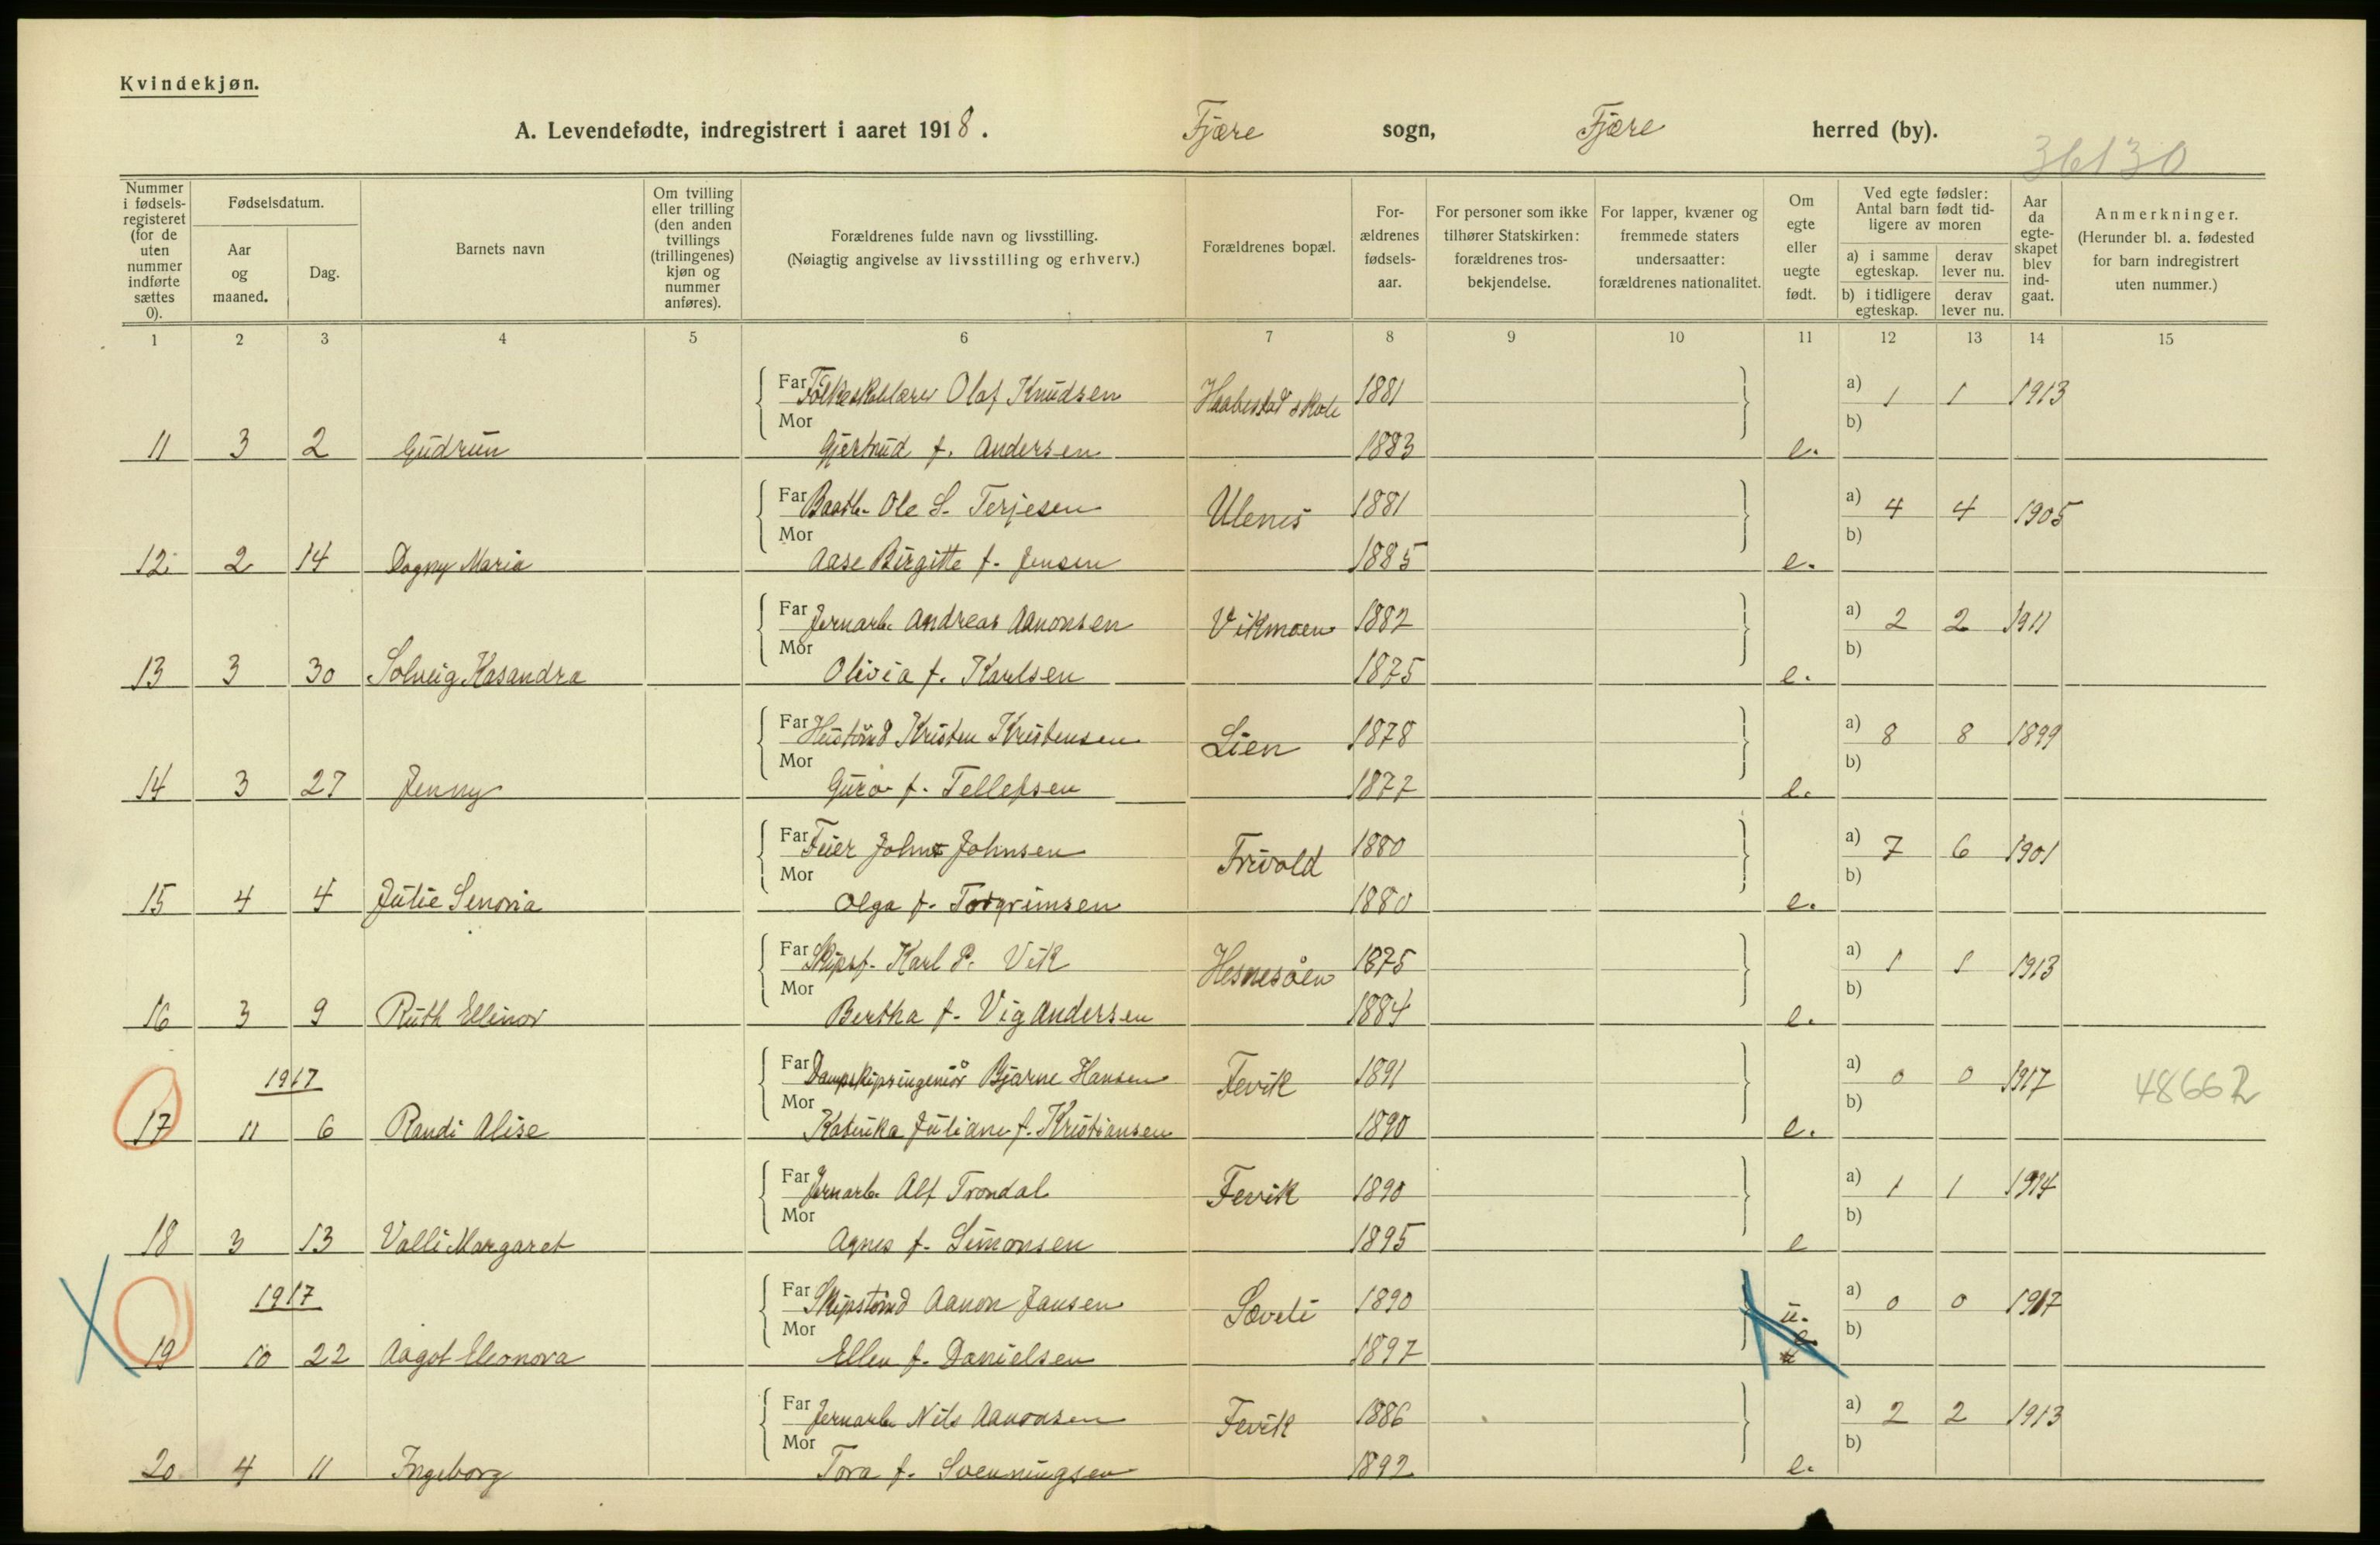 Kvindekjøn.
A. Levendefødte, indregistrert i aaret 1918. Fjære sogn, Fjære herred (by).
36130
Nummer i fødsels-registeret (for de uten nummer indførte sættes 0).
Fødselsdatum.
Aar og maaned.
Dag.
Barnets navn
Om tvilling eller trilling (den anden tvillings (trillingenes) kjøn og nummer anføres).
Forældrenes fulde navn og livsstilling. (Nøiagtig angivelse av livsstilling og erhverv.)
Forældrenes bopæl.
For-ældrenes fødsels-aar.
For personer som ikke tilhører Statskirken: forældrenes tros-bekjendelse.
For lapper, kvæner og fremmede staters undersaatter: forældrenes nationalitet.
Om egte eller uegte født.
Ved egte fødsler: Antal barn født tid-ligere av moren
a) i samme egteskap.
derav lever nu.
b) i tidligere egteskap.
derav lever nu.
Aar da egte-skapet blev ind-gaat.
Anmerkninger. (Herunder bl. a. fødested for barn indregistrert uten nummer.)
1 2 3 4 5 6 7 8 9 10 11 12 13 14 15
Far Folkeskolelærer Olaf Knudsen Haabestad skole 1881 a) 1 1 1913
Mor b)
11 3 2 Gudrun Gjertrud f. Andersen 1883 e.
Far Baatb. Ole S. Terjesen Ulenes 1881 a) 4 4 1905
Mor b)
12 2 14 Dagny Maria Aase Birgitte f. Jensen 1885 e.
Far Jernarb. Andreas Aanonsen Vikmoen 1882 a) 2 2 1911
Mor b)
13 3 30 Solveig Kasandra Olivia f. Karlsen 1875 e.
Far Kristen Kristensen Lien 1878 a) 8 8 1899
Mor b)
14 3 27 Jenny Guro f. Tellefsen 1877 e.
Far Feier John Johnsen Frivold 1880 a) 7 6 1901
Mor b)
15 4 4 Julie Senovia Olga f. Torgrimsen 1880 e.
Far Skipsf. Karl P. Vik Hesnesøen 1875 a) 1 1 1913
Mor b)
16 3 9 Ruth Ellinor Bertha f. Vig Andersen 1884 e.
Far Dampskipsingeniör Bjarne Hansen Fevik 1891 a) 0 0 1917 48662
1917
Mor b)
17 11 6 Randi Alise Katinka Juliane f. Kristiansen 1890 e.
Far Jernarb. Alf Trondal Fevik 1890 a) 1 1 1914
Mor b)
18 3 13 Valli Margaret Agnes f. Simonsen 1895 e
Far Skipstömd Aanon Jansen Søveli 1890 u. a) 0 0 1917
1917
Mor b)
19 10 22 Aagot Eleonora Ellen f. Danielsen 1897 e.
Far Jernarb. Nils Aanonsen Fevik 1886 a) 2 2 1913
Mor b)
20 4 11 Ingeborg Tora f. Svenningsen 1892 e.